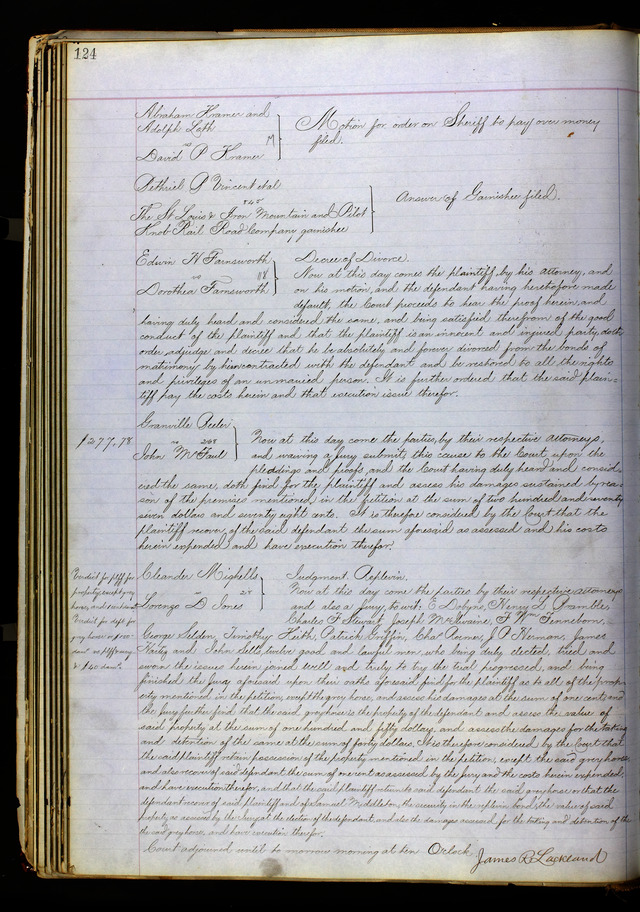 124
Abraham Kramer and
Adolph Loth
vs
David P Kramer
Motion for order on Sheriff to pay over money
filed.
Bethuel A Vincent et al
The St Louis & Iron Mountain and Pilot
Knob Rail Road Company garnishee
Answer of Garnishee filed.
Edwin H Farnsworth
vs
Dorothea Farnsworth
Decree of Divorce.
Now at this day comes the plaintiff, by his attorney, and
on his motion, and the defendant having heretofore made
default, the Court proceeds to hear the proof herein, and
having duly heard and considered the same, and being satisfied therefrom of the good
conduct of the plaintiff and that the plaintiff is an innocent and injured party, doth
order adjudge and decree that he be absolutely and forever divorced from the bonds of
matrimony by him contracted with the defendant and be restored to all the rights
and privileges of an unmarried person. It is further ordered that the said plain=
tiff pay the costs herein and that execution issue therefor.
$277.78
Granville Peeler
vs
John McFaul
Now at this day come the parties, by their respective attorneys,
and waiving a jury submit this cause to the Court upon the
pleadings and proofs, and the Court having duly heard and consid=
ered the same, doth find for the plaintiff and assess his damages sustained by rea=
son of the premises mentioned in the petition at the sum of two hundred and seventy
seven dollars and seventy eight cents. It is therefore considered by the Court that the
plaintiff recover of the said defendant the sum aforesaid as assessed and his costs
herein expended and have execution therefor.
Verdict for plff for
property, except grey
horse, and one cent
Verdict for deft for
grey horse
$40 dam's
Oleander Mighells
Lorenzo D Jones
Judgment Replevin.
Now at this day come the parties by their respective attorneys
and also a Jury, to wit: E Dobyns, Henry D Bramble,
Charles F Stewart, Joseph McIlvaine, F Wm Tenneborn,
George Selden, Timothy Keith, Patrick Griffin, Chas Roemer, J P Herman, James
Harty and John Sells, twelve good and lawful men, who being duly elected, tried and
sworn the issues herein joined well and truly to try the trial progressed, and being
finished the Jury aforesaid upon their oaths aforesaid find for the plaintiff as to all of the prop=
erty mentioned in the petition, except the grey horse, and assess his damages at the sum of one cent and
the Jury further find that the said grey horse is the property of the defendant and assess the value of
said property at the sum of one hundred and fifty dollars, and assess the damages for the taking
and detention of the same at the sum of forty dollars. It is therefore considered by the Court that
the said plaintiff retain possession of the property mentioned in the petition, except the said grey horse,
and also recover of said defendant the sum of one cent as assessed by the jury and the costs herein expended,
and have execution therefor, and that the said plaintiff return to said defendant the said grey horse or that the
defendant recover of said plaintiff and of Samuel Middleton, the security in the replevin bond, the value of said
property as assessed by the Jury, at the election of the defendant, and also the damages assessed for the taking and detention of the
the said grey horse, and have execution therefor.
Court adjourned until to morrow morning at ten Oclock
James R Lackland